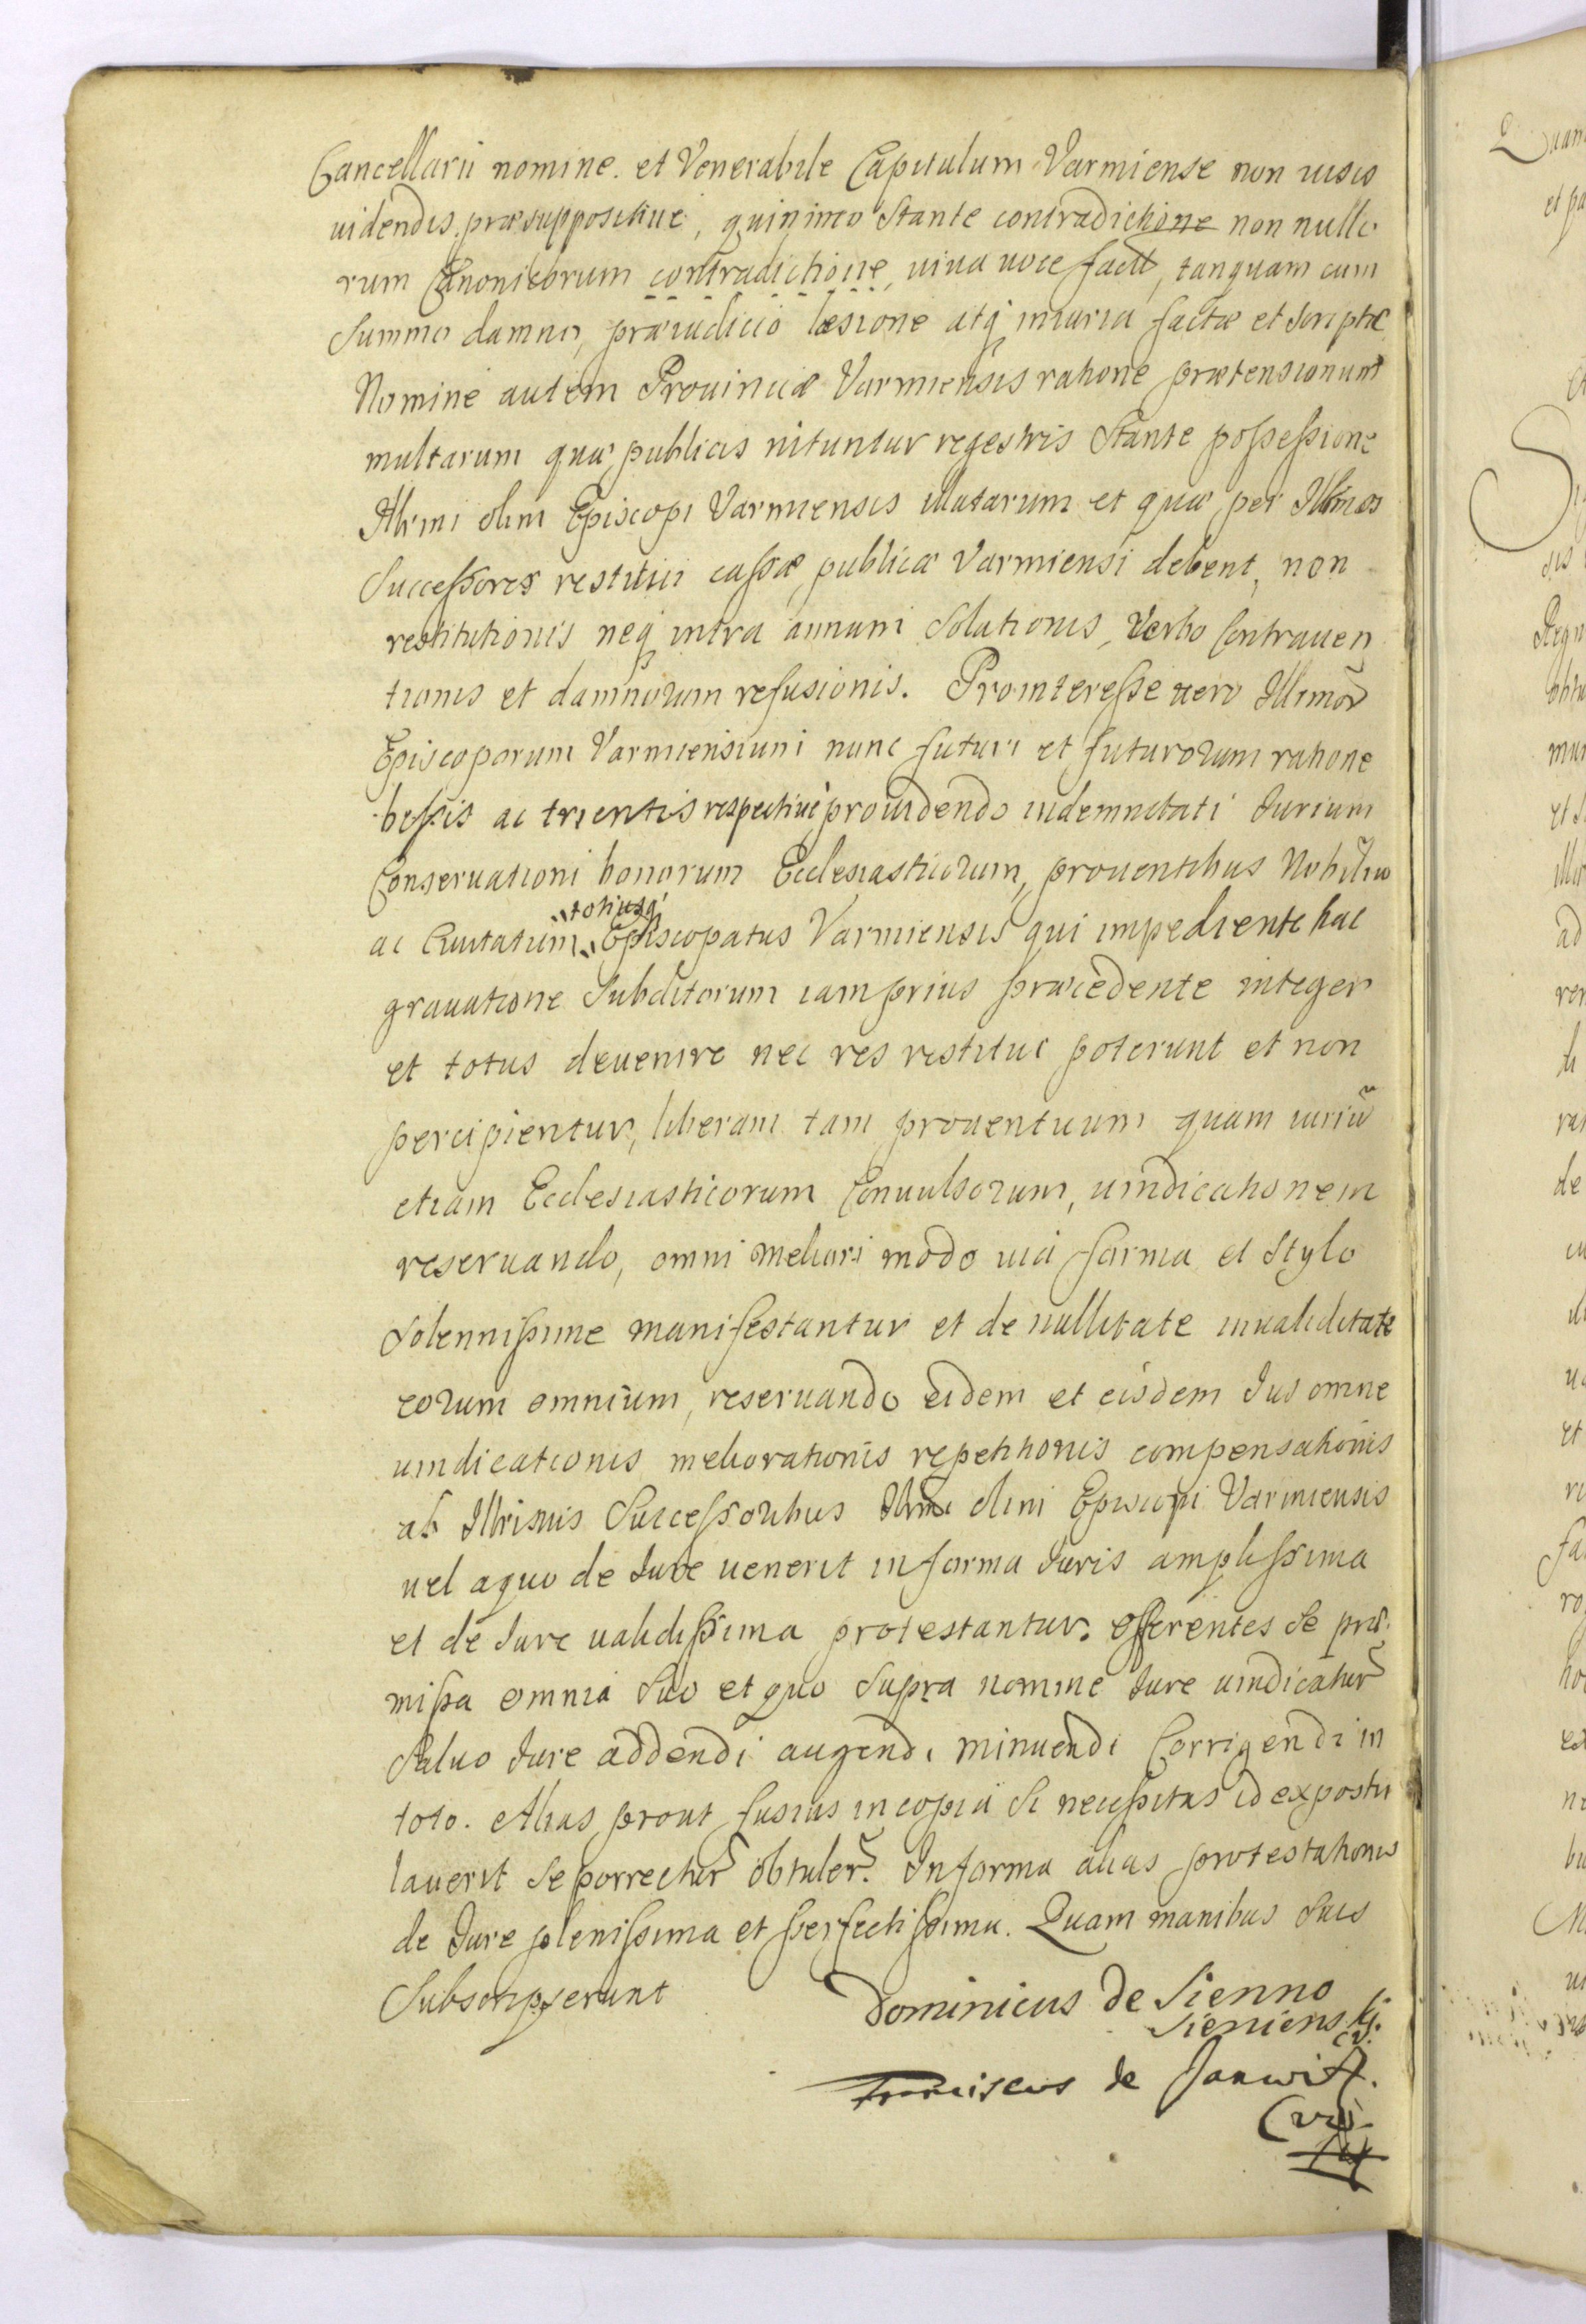 Cancellarii nomine. et Venerabile Capitulum Varmiense non uisis
uidendis. præsuppositiue, quinimo Stante contradictione non nullo
rum Canonicorum contradictione, uiua uoce facta, tanquam cum
Summo damno, præiudicio læsione atq iniuria factæ et scriptæ
Nomine autem Prouinciæ Varmiensis ratione prætensionum
multarum quæ publicis nituntur regestris Stante possessione
Illrmi olim Episcopi Varmiensis illatarum et quæ per Illrmos
Successores restitui cassæ publicæ Varmiensi debent, non
restitutionis neq intra annum Solutionis, Verbo Contrauen
tionis et damnorum refusionis. Prointeresse uero Illrmor
Episcoporum Varmiensium nunc futuri et futurorum ratione
bessis ac trientis respectiue prouidendo indemnitati Jurium
Conseruationi bonorum Ecclesiasticorum, prouentibus Nobiliũ
totiusq
ac Ciuitatum Episcopatus Varmiensis qui impediente hac
grauatione Subditorum iamprius præcedente integer
et totus deuenire nec res restitui poterunt et non
percipientur, liberam tam prouentuum quam iuriũ
etiam Ecclesiasticorum Conuulsorum, uindicationem
reseruando, omni meliori modo uia forma et Stylo
Solennissime manifestantur et de nullitate inualiditate
eorum omnium, reseruando eidem et eisdem Jus omne
uindicationis meliorationis repetitionis compensationis
ab Illrismis Successoribus Illrmi olim Episcopi Varmiensis
uel aquo de Jure uenerit informa Juris amplissima
et de Jure ualidissima protestantur. Offerentes Se præ
missa omnia Suo et quo Supra nomine Jure uindicatur
Saluo Jure addendi augendi minuendi Corrigendi in
toto. Alias prout fusius in copia Si necessitas id expostu
lauerit Se porrectur obtuler. Informa alias protestationis
de Jure plenissima et perfectissima. Quam manibus Suis
Subscripserunt
Dominicus de Sienno
Sieniensky.
Franciscus de